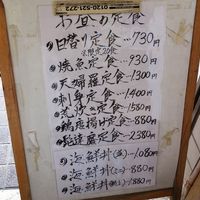 0120-521-272
お昼の定食
日替り定食 730円
限定20食
焼魚定食 930円
天婦羅定食 1300円
刺身定食 1400円
煮炊き定食 1580円
鶏唐揚げ定食 880円
定食 2380円
海鮮丼 1080円
海鮮丼 880円
海鮮丼 1880円